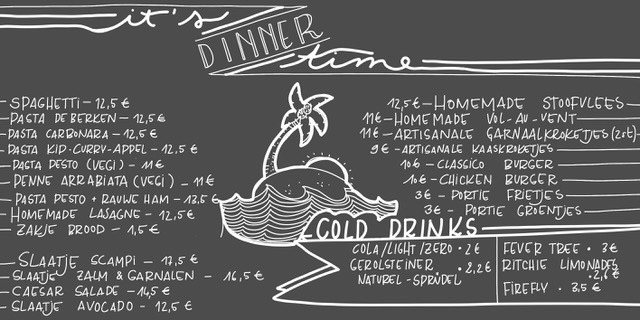 it's
DINNER
time
SPAGHETTI - 12,5 €
PASTA DE BERKEN - 12,5 €
PASTA CARBONARA - 12,5 €
PASTA KIP-CURRY-APPEL - 12,5 €
PASTA PESTO (VEGI) - 11 €
PENNE ARRABIATA (VEGI) - 11 €
PASTA PESTO + RAUWE HAM - 13,5 €
HOMEMADE LASAGNE - 12,5 €
ZAKJE BROOD - 1,5 €
SLAATJE SCAMPI - 17,5 €
SLAATJE ZALM & GARNALEN - 16,5 €
CAESAR SALADE - 14,5 €
SLAATJE AVOCADO - 12,5 €
12,5€ - HOMEMADE STOOFVLEES
11€ - HOMEMADE VOL-AU-VENT
11€ - ARTISANALE GARNAALKROKETJES (2st)
9€ - ARTISANALE KAASKROKETJES
10€ - CLASSICO BURGER
10€ - CHICKEN BURGER
3€ - PORTIE FRIETJES
3€ - PORTIE GROENTJES
COLD DRINKS
COLA/LIGHT/ZERO • 2€
GEROLSTEINER • 2,2€
NATUREL-SPRUDEL
FEVER TREE • 3€
RITCHIE LIMONADES
• 2,6 €
FIREFLY • 3,5€